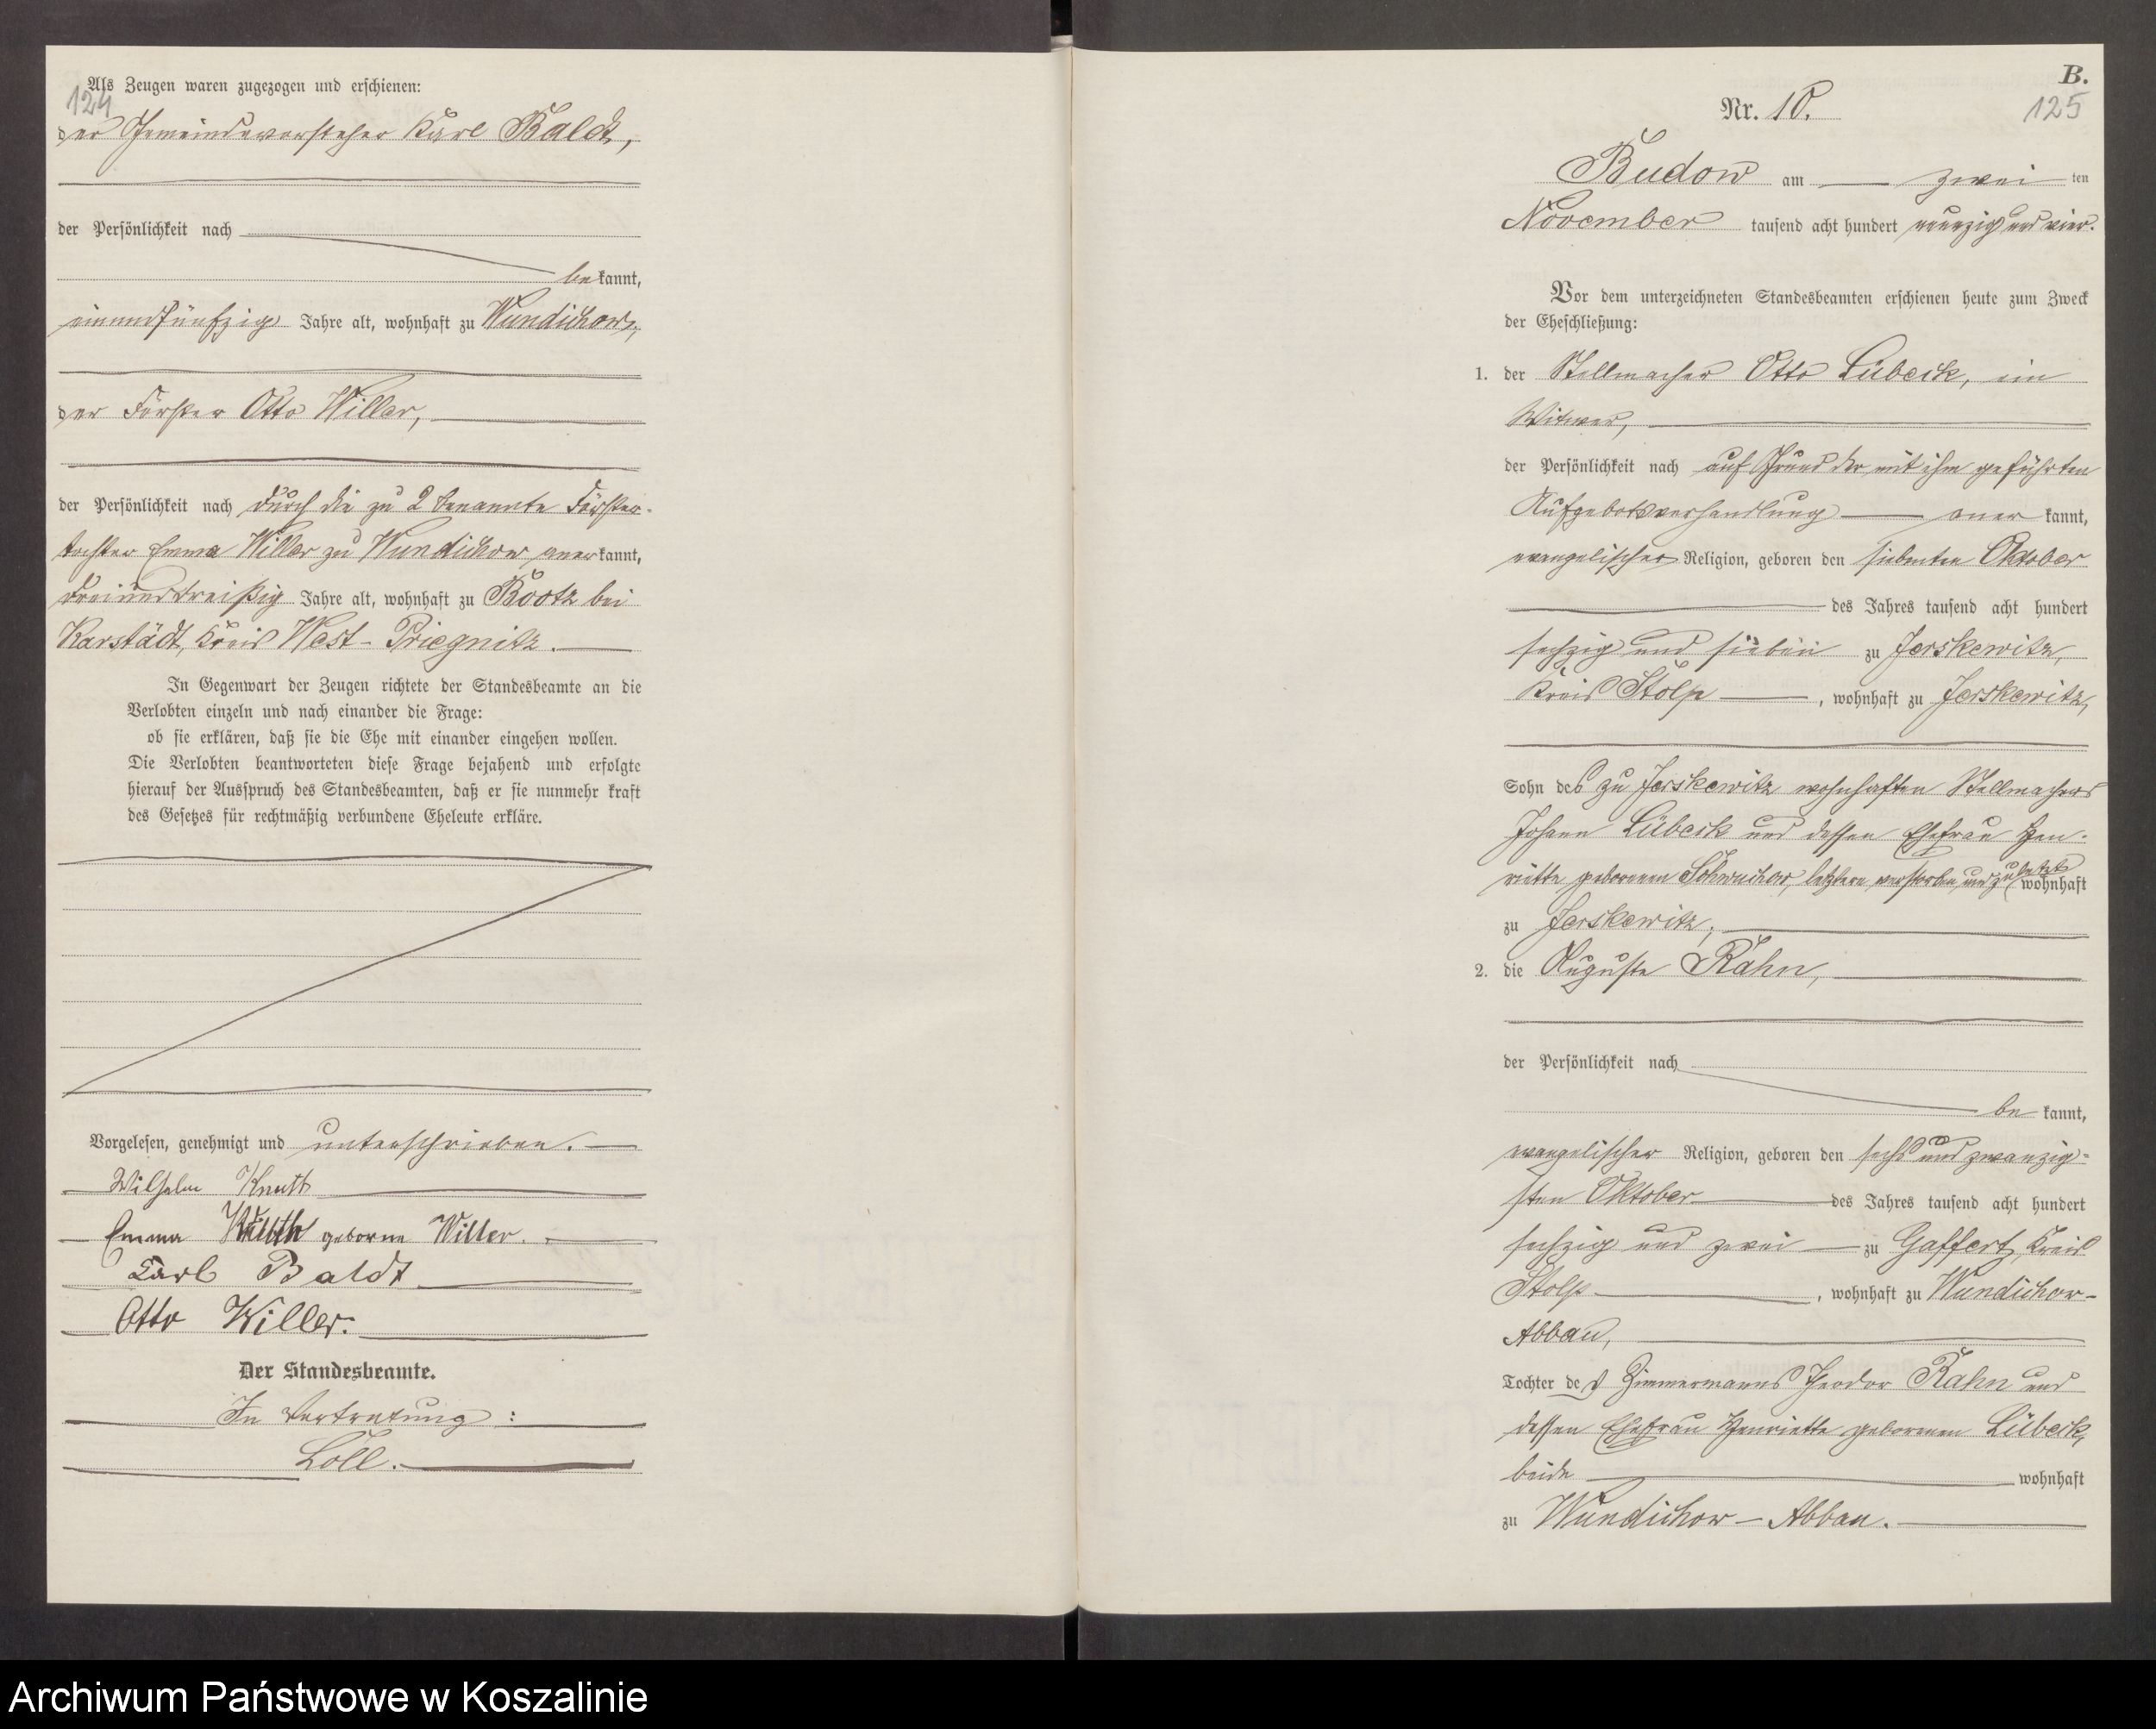 Als Zeugen waren zugezogen und erschienen:
124
der Gemeindevorsteher Karl Baldt,
der Persönlichkeit nach
bekannt,
einundfünfzig Jahre alt, wohnhaft zu Wundichow,
der Förster Otto Willer,
der Persönlichkeit nach durch die zu 2 benannte Förster-
tochter Emma Willer zu Wundichow anerkannt,
dreiunddreißig Jahre alt, wohnhaft zu Bootz bei
Karstädt, Kreis West-Priegnitz.
In Gegenwart der Zeugen richtete der Standesbeamte an die
Verlobten einzeln und nach einander die Frage:
ob sie erklären, daß sie die Ehe mit einander eingehen wollen.
Die Verlobten beantworteten diese Frage bejahend und erfolgte
hierauf der Ausspruch des Standesbeamten, daß er sie nunmehr kraft
des Gesetzes für rechtmäßig verbundene Eheleute erkläre.
Vorgelesen, genehmigt und unterschrieben.
Wilhelm Knuth
Emma Knuth geborne Willer.
Carl Baldt
Otto Willer.
Der Standesbeamte.
In Vertretung:
Loll.
B.
125
Nr. 10.
Budow am zwei ten
November tausend acht hundert neunzig und vier.
Vor dem unterzeichneten Standesbeamten erschienen heute zum Zweck
der Eheschließung:
1. der Stellmacher Otto Lübeck, ein
Witwer,
der Persönlichkeit nach auf Grund der mit ihm geführten
Aufgebotsverhandlung aner kannt,
evangelischer Religion, geboren den siebenten Oktober
des Jahres tausend acht hundert
sechzig und sieben zu Jerskewitz,
Kreis Stolp, wohnhaft zu Jerskewitz,
Sohn des zu Jerskewitz wohnhaften Stellmachers
Johann Lübeck und dessen Ehefrau Hen-
riette geborenen letztere verstorben und zuletzt wohnhaft
zu Jerskewitz;
2. die Auguste Rahn,
der Persönlichkeit nach
be kannt,
evangelischer Religion, geboren den sechs und zwanzig-
sten Oktober des Jahres tausend acht hundert
sechzig und zwei zu Gaffert, Kreis
Stolp, wohnhaft zu Wundichow-
Abbau,
Tochter des Zimmermanns Theodor Rahn und
dessen Ehefrau Henriette geborenen Lübeck,
beide wohnhaft
zu Wundichow-Abbau.
Archiwum Państwowe w Koszalinie